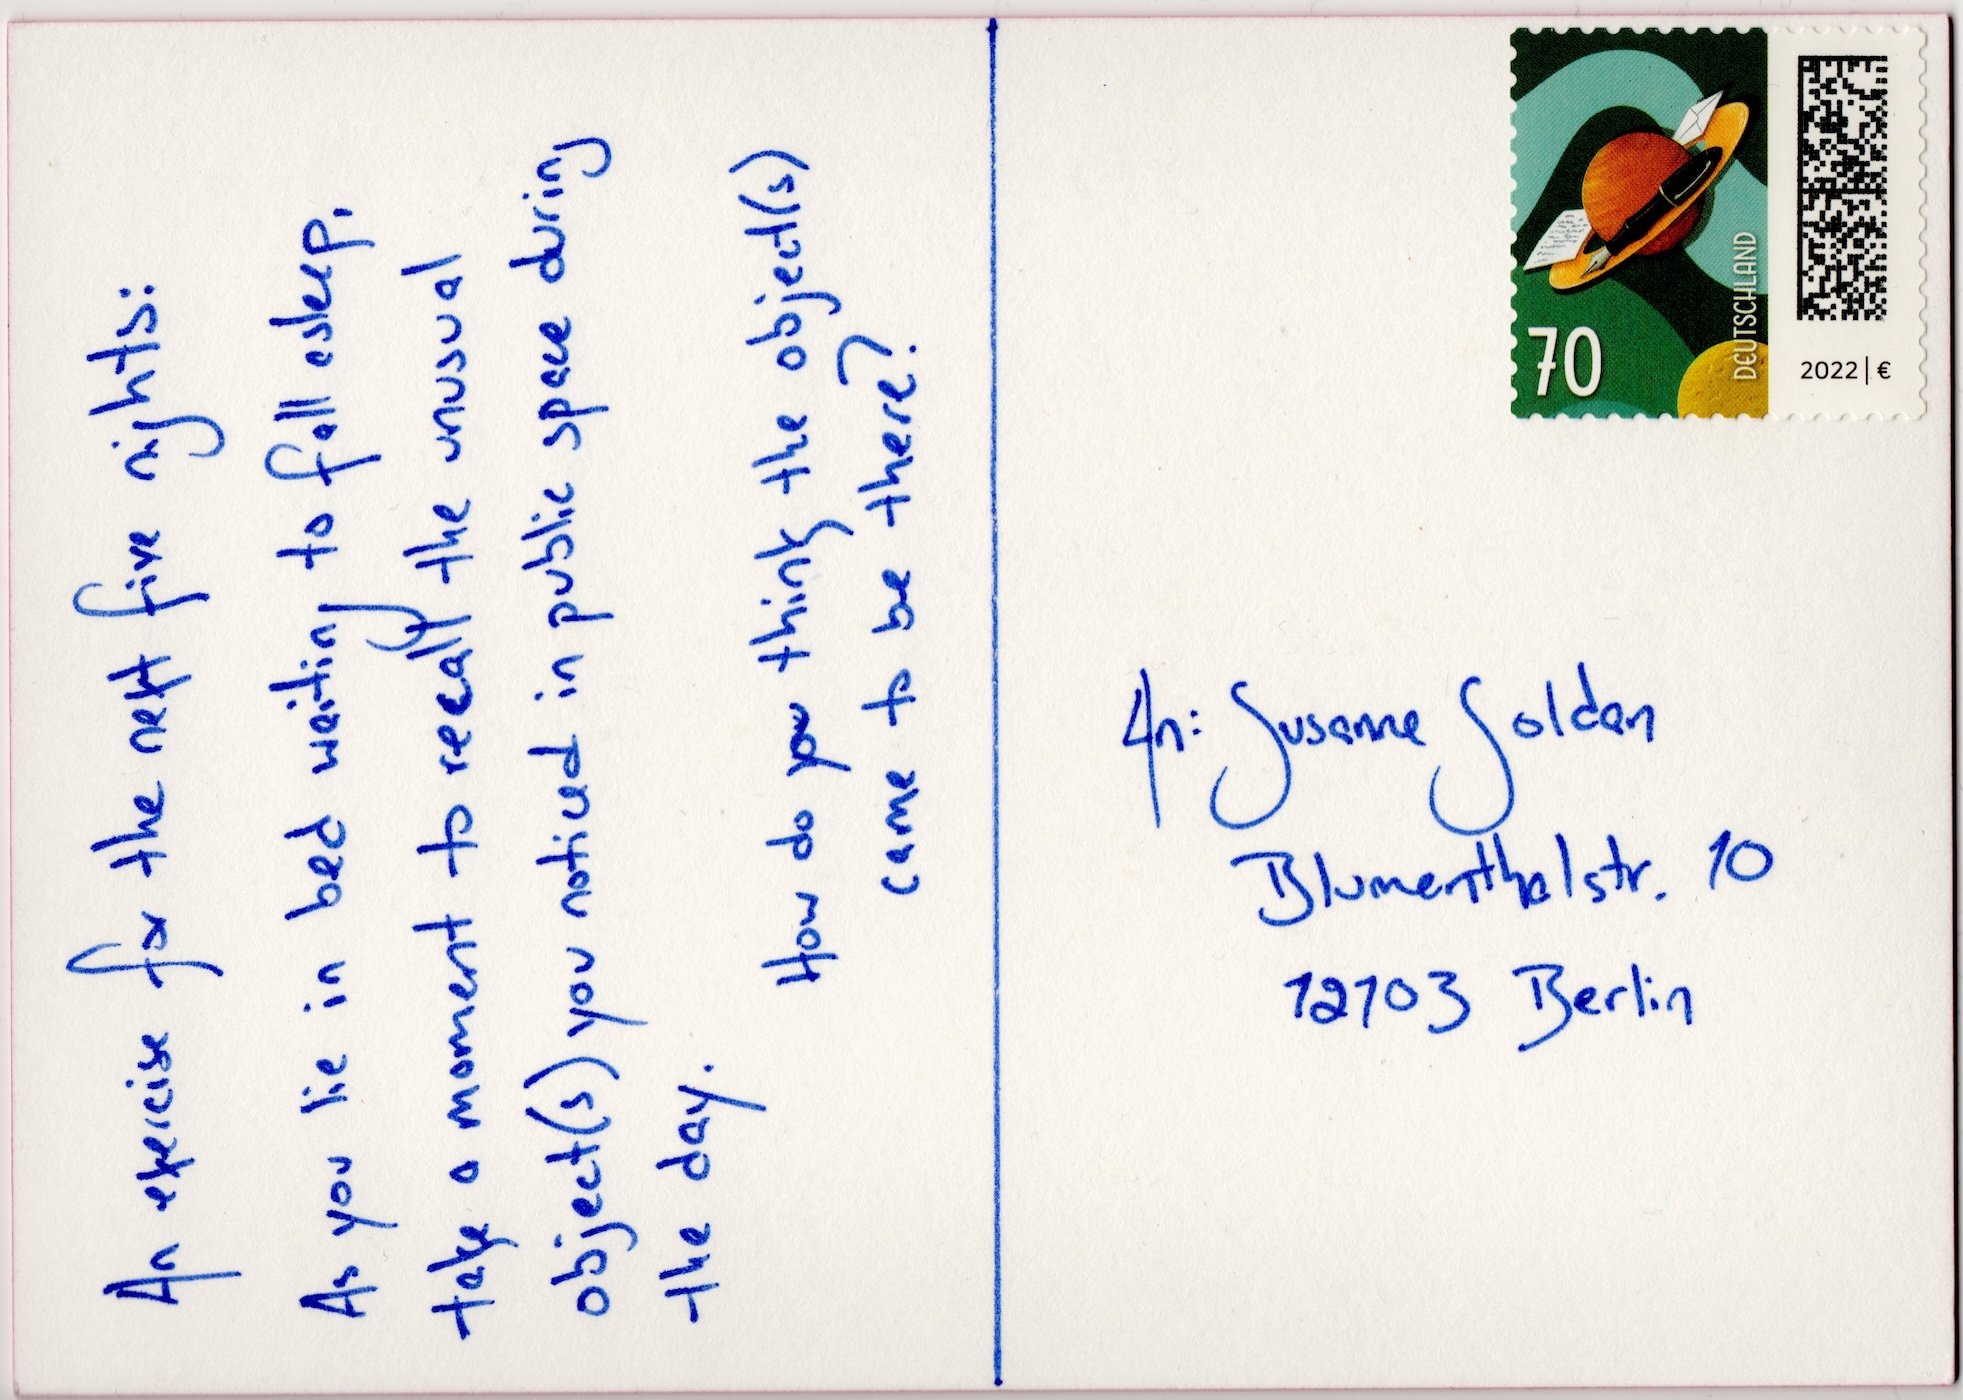 An exercise for the next five nights:
As you lie in bed waiting to fall asleep,
take a moment to recall the unusual
object(s) you noticed in public space during
the day.
How do you think the object(s)
came to be there?
70
DEUTSCHLAND
2022 | €
An: Susanne Soldan
Blumenthalstr. 10
12103 Berlin